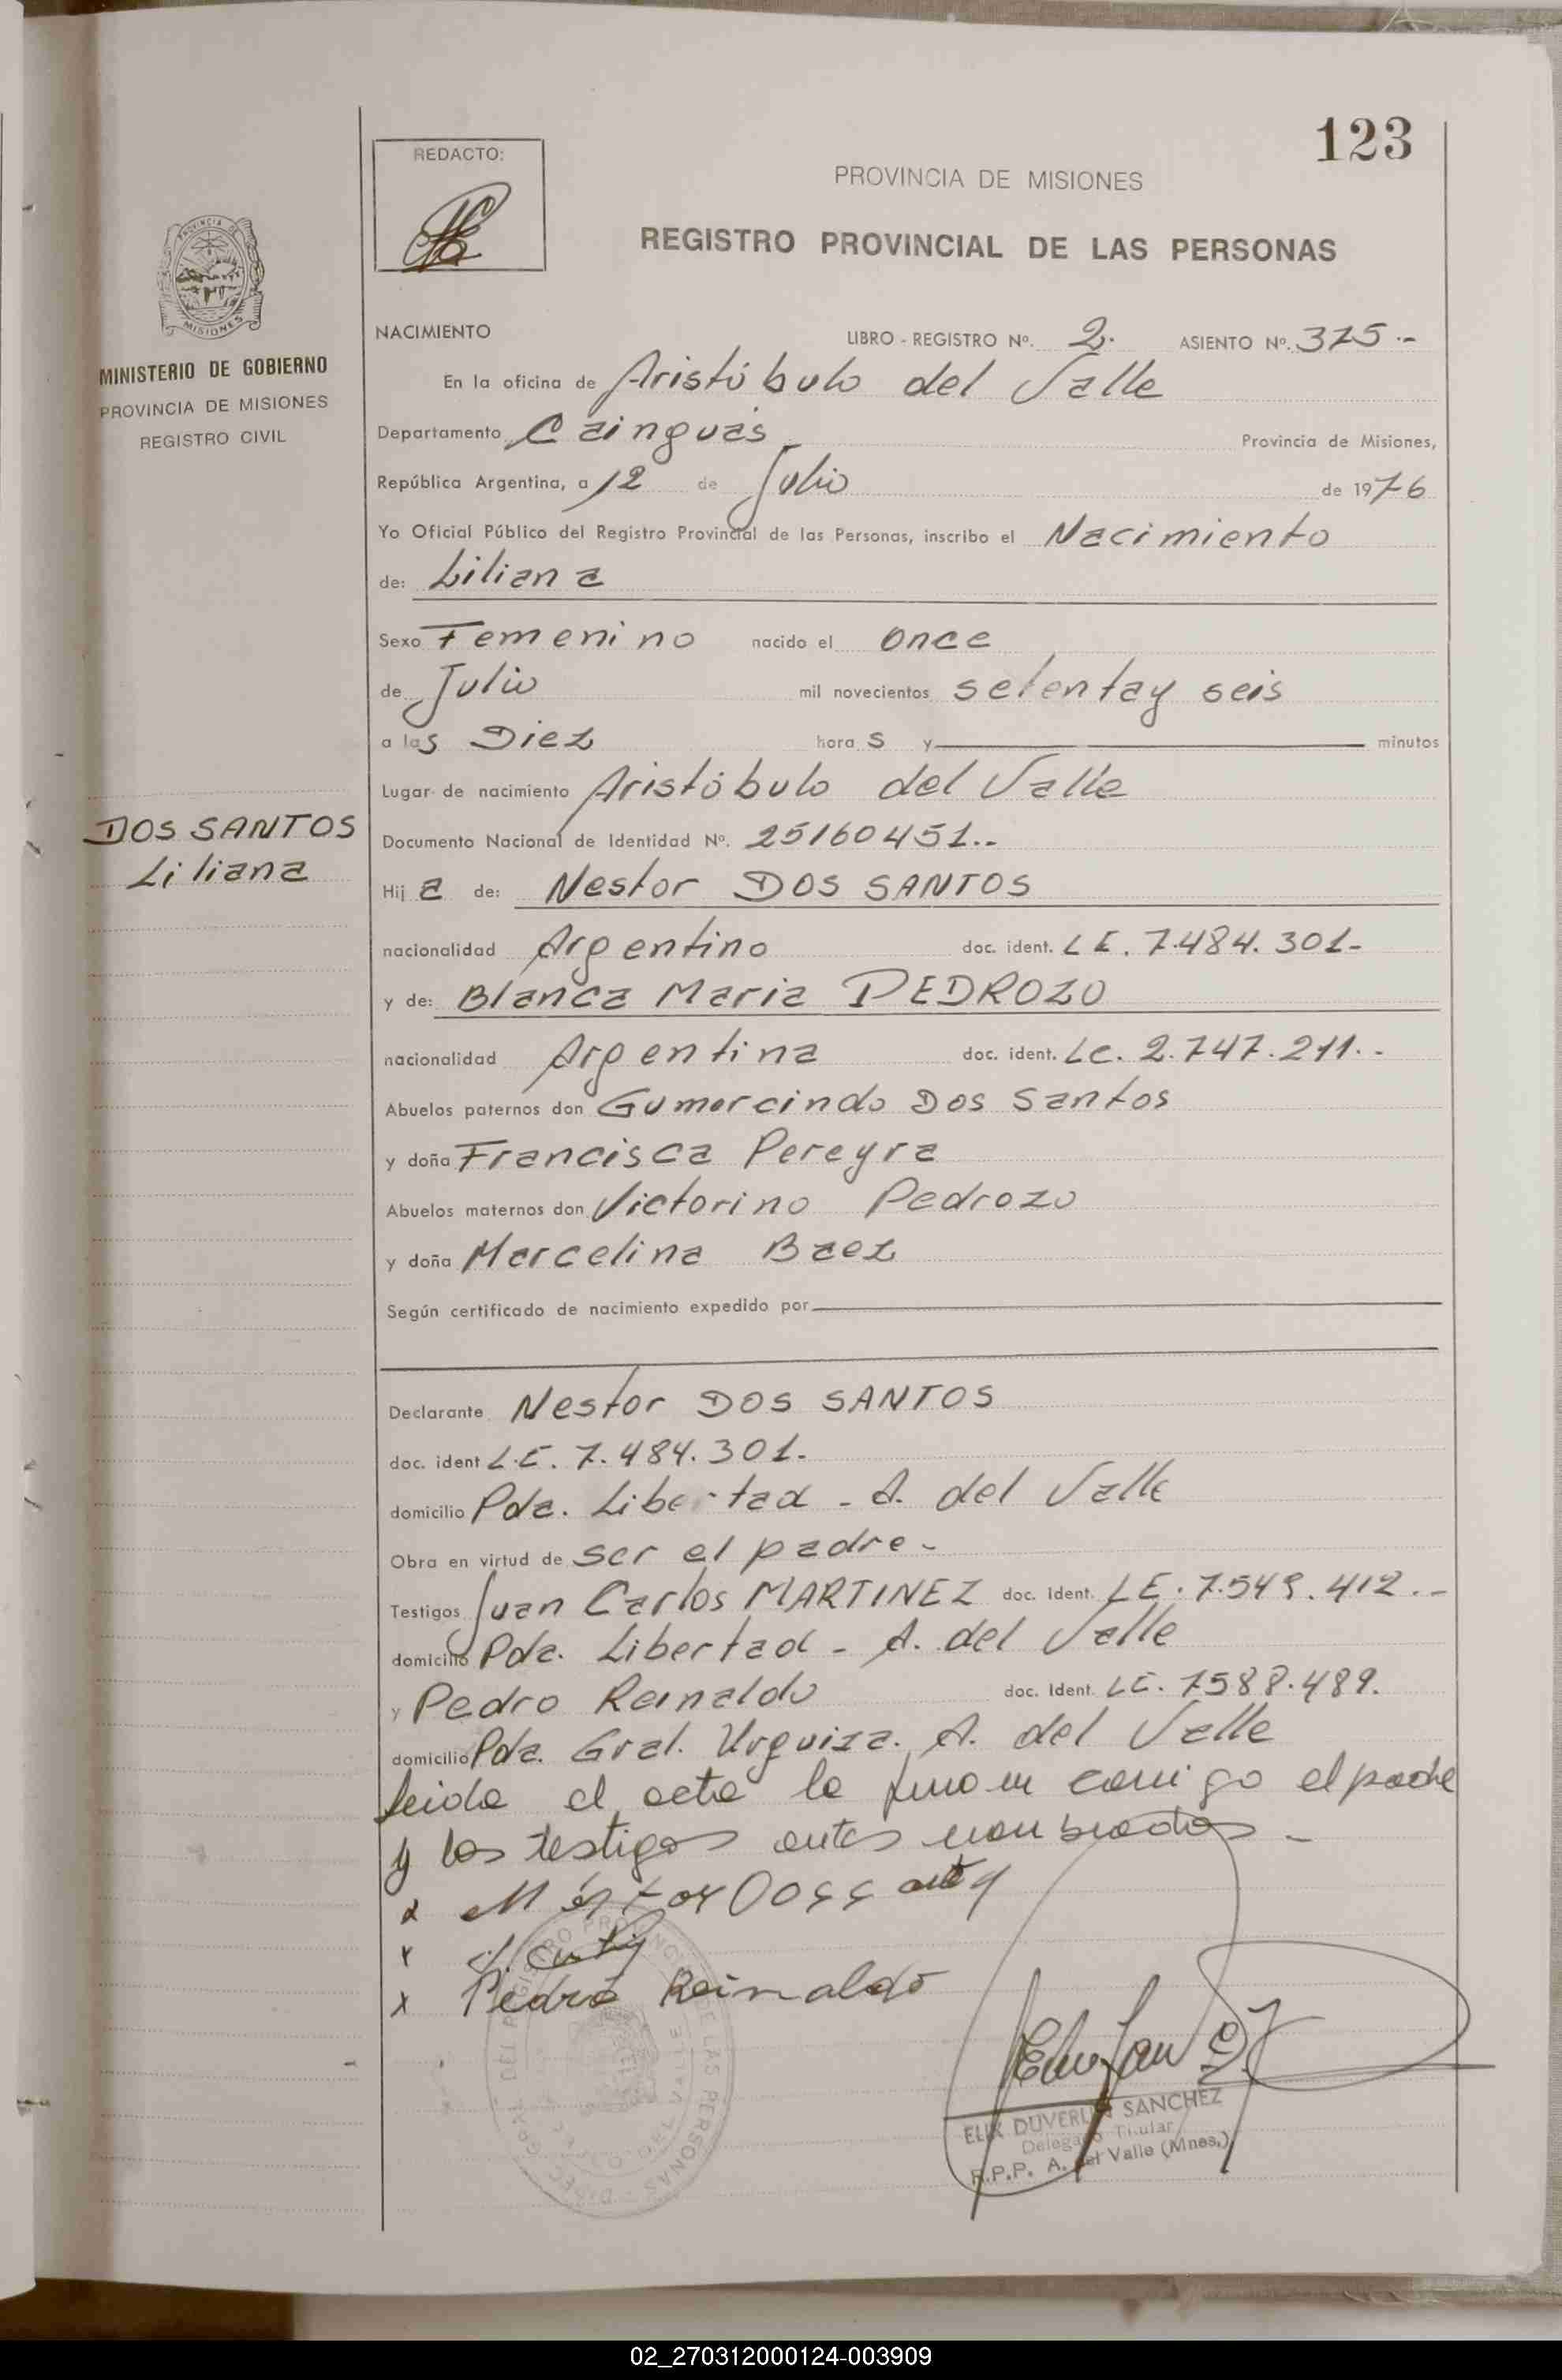 123
REDACTO:
PROVINCIA DE MISIONES
REGISTRO PROVINCIAL DE LAS PERSONAS
PROVINCIA DE
MISIONES
MINISTERIO DE GOBIERNO
PROVINCIA DE MISIONES
REGISTRO CIVIL
DOS SANTOS
Liliana
NACIMIENTO LIBRO - REGISTRO Nº. 2. ASIENTO Nº. 375.-
En la oficina de Aristóbulo del Valle
Departamento Cainguás Provincia de Misiones,
República Argentina, a 12 de Julio de 1976
Yo Oficial Público del Registro Provincial de las Personas, inscribo el Nacimiento
de: Liliana
Sexo Femenino nacido el once
de Julio mil novecientos setentay seis
a las Diez horas y minutos
Lugar de nacimiento Aristóbulo del Valle
Documento Nacional de Identidad Nº. 25160451..
Hija de: Nestor DOS SANTOS
nacionalidad Argentino doc. ident. LE. 7.484.301-
y de: Blanca Maria PEDROZO
nacionalidad Argentina doc. ident. LC. 2.747.211.-
Abuelos paternos don Gumercindo Dos Santos
y doña Francisca Pereyra
Abuelos maternos don Victorino Pedrozo
y doña Marcelina Baez
Según certificado de nacimiento expedido por
Declarante Nestor DOS SANTOS
doc. ident L.E. 7.484.301.
domicilio Pda. Libertad - A. del Valle
Obra en virtud de ser el padre-
Testigos Juan Carlos MARTINEZ doc. Ident. LE. 7.549.412.-
domicilio Pda. Libertad - A. del Valle
y Pedro Reinaldo doc. Ident. LE. 7588.489.
domicilio Pda. Gral. Urquiza. A. del Valle
leida el acta la firman conmigo el padre
y los testigos antes nombrados -
x
x
x Pedro Reinaldo
ELIX DUVERLIN SANCHEZ
Delegado Titular
R.P.P. A. del Valle (Mnes.)
02_270312000124-003909